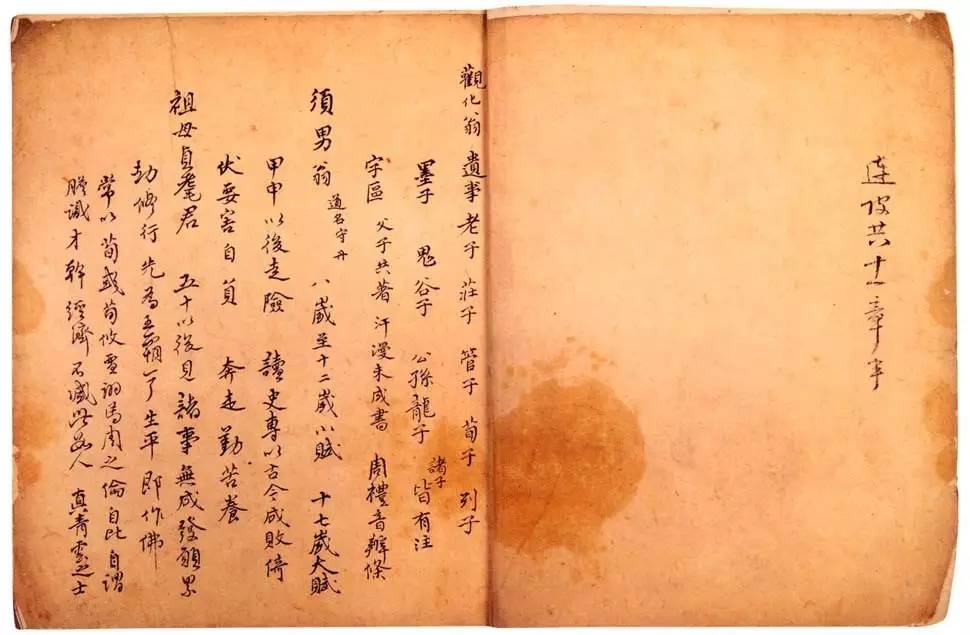 連皮共十一章
觀化翁遺事 老子 莊子 管子 荀子 列子
墨子 鬼谷子 公孫龍子 諸子 皆有注
字區 父子共著 汗漫未成書 周禮音辨條
須男翁 道名守丹 八歲至十二歲小賦 十七歲大賦
甲申以後走險 讀史專以古今成敗倚
伏要害自負 奔走勤苦養
祖母貞髦君 五十以後見諸事無成發願累
劫修行先為王霸了生平即作佛
常以荀彧荀攸賈詡馬周之倫自比自謂
膽識才幹經濟不減此數人 真青雲之士